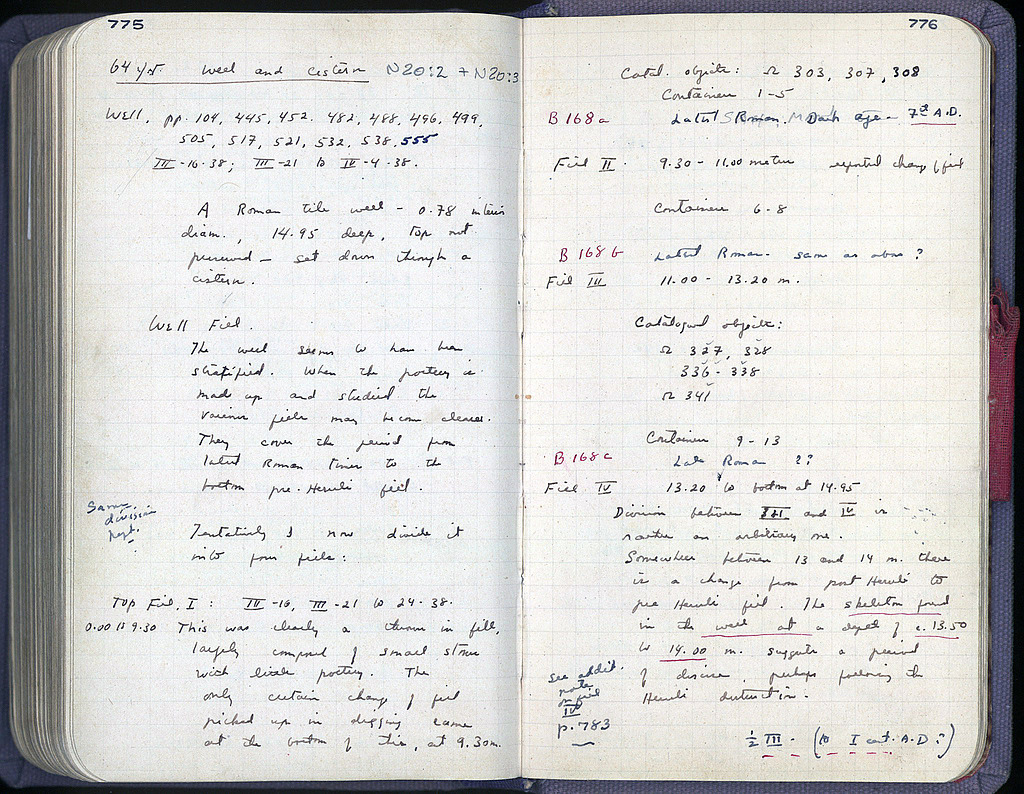 775
64/ΙΣΤ. Well and cistern N20:2 + N20:3
Well. pp. 104, 445, 452. 482, 488, 496, 499,
505, 517, 521, 532, 538, 555
III-16-38; III-21 to IV-4-38.
A Roman tile well - 0.78 interior
diam., 14.95 deep, top not
preserved - set down through a
cistern.
Well Fill.
The well seems to have been
stratified. When the pottery is
made up and studied the
various fills may become clearer.
They cover the period from
latest Roman times to the
bottom pre-Heruli fill.
Same
division
kept.
Tentatively I now divide it
into four fills:
Top Fill, I: III-16, III-21 to 24-38.
0.00 to 9.30 This was clearly a thrown in fill,
largely composed of small stones
with little pottery. The
only certain change of fill
picked up in digging came
at the bottom of this, at 9.30m.
776
Catal. objects: Ω 303, 307, 308
Containers 1-5
B 168a Latest Roman, Dark age - 7th A.D.
Fill II. 9.30 - 11.00 meters reported change of fill
Containers 6-8
B 168 b Latest Roman. same as above?
Fill III 11.00 - 13.20 m.
Catalogued objects:
Ω 327, 328
336 - 338
Ω 341
Containers 9-13
B 168 c Late Roman ??
Fill IV 13.20 to bottom at 14.95
Division between III and IV is
rather an arbitrary one.
Somewhere between 13 and 14 m. there
is a change from post Heruli to
pre Heruli fill. The skeleton found
in the well at a depth of c. 13.50
to 14.00 m. suggests a period
of disuse, perhaps following the
Heruli destruction.
See addit.
note
on fill
IV
p. 783
½ III. (to I cent. A.D.?)